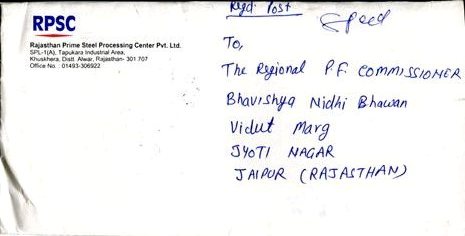 RPSC
Rajasthan Prime Steel Processing Center Pvt. Ltd.
SPL-1(A), Tapukara Industrial Area,
Khushkhera, Distt. Alwar, Rajasthan- 301 707
Office No. : 01493-306922
Regd. Post Speed
To,
The Regional P.F. COMMISSIONER
Bhavishya Nidhi Bhawan
Vidut Marg
JYOTI NAGAR
JAIPUR (RAJASTHAN)